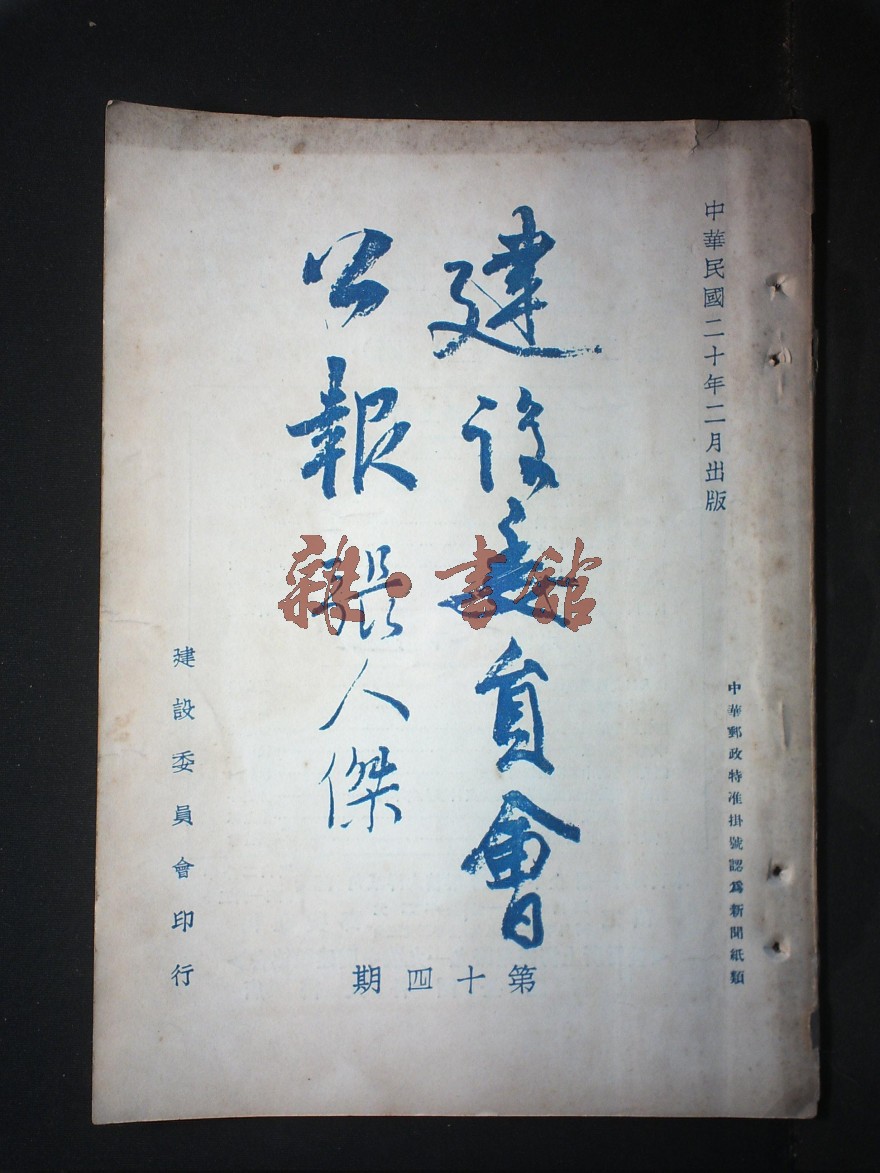 中華民國二十年二月出版
中華郵政特准掛號認爲新聞紙類
建設委員會
公報 張人傑
第十四期
建設委員會印行
雜·書館